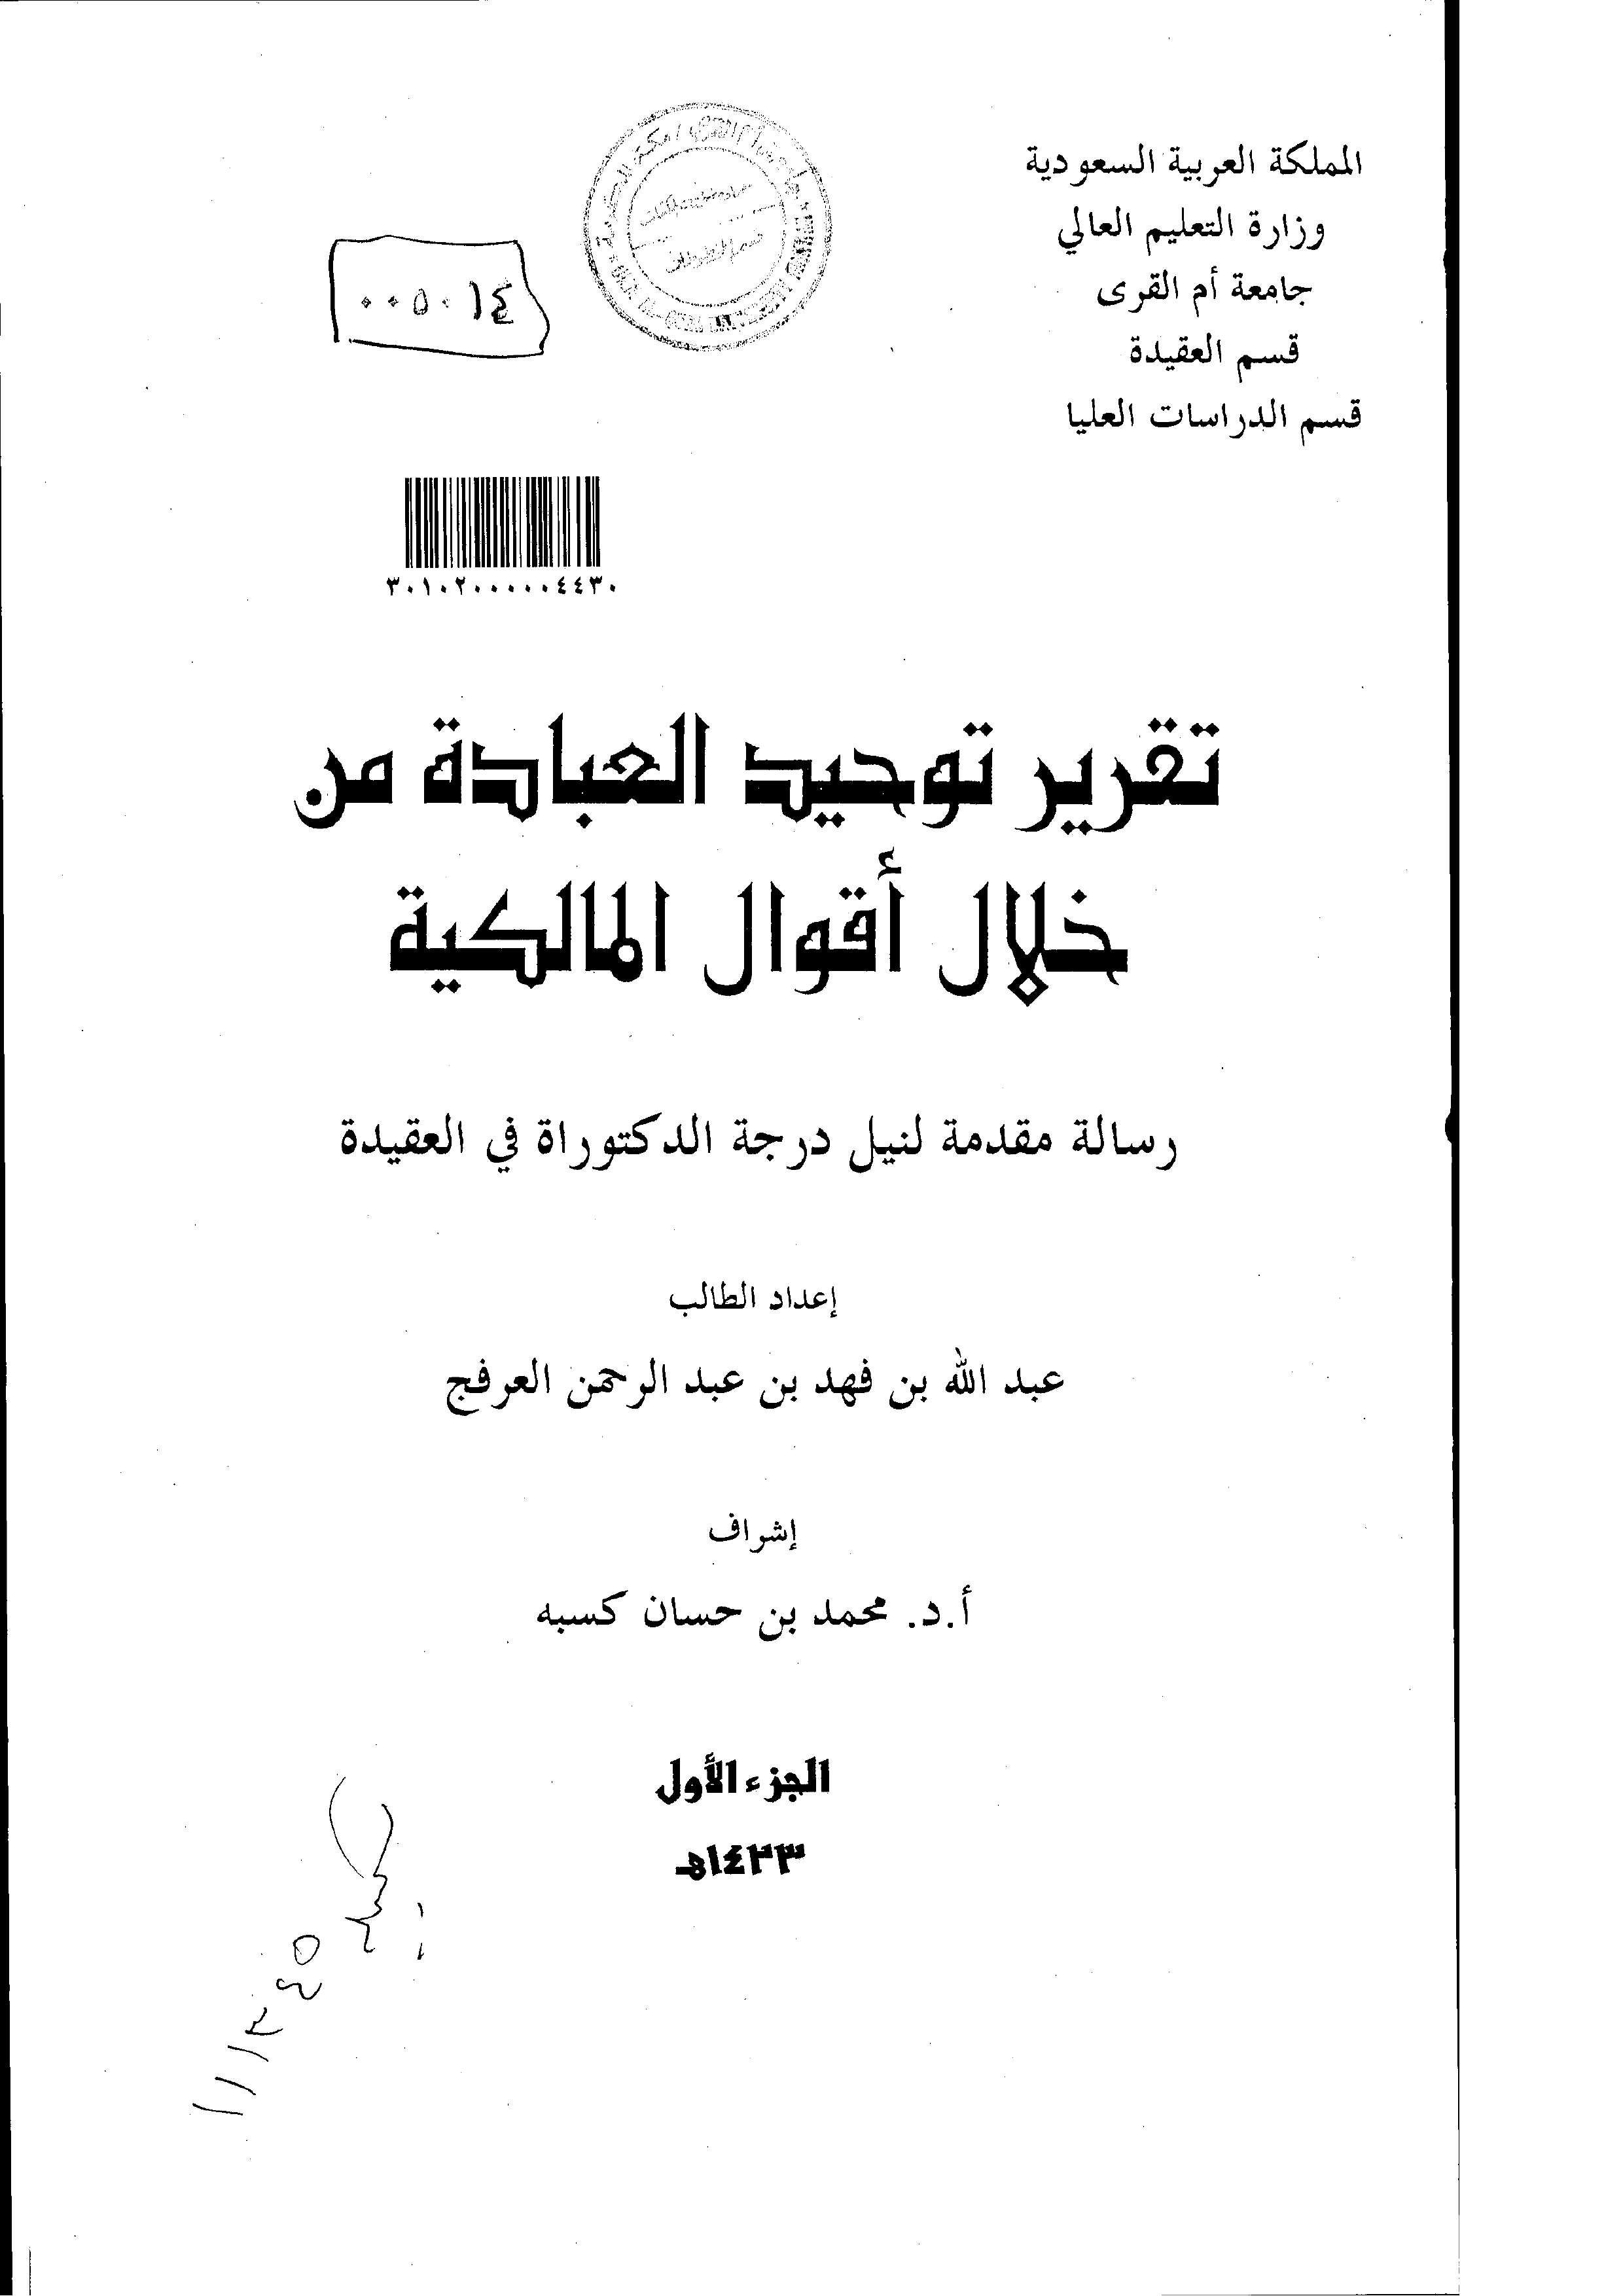 المملكة العربية السعودية
وزارة التعليم العالي
جامعة أم القرى
قسم العقيدة
قسم الدراسات العليا
٠٠٥٠١٤
٣٠١٠٢٠٠٠٠٠٤٤٣٠
تقرير توحيد العبادة من
خلال أقوال المالكية
رسالة مقدمة لنيل درجة الدكتوراة في العقيدة
إعداد الطالب
عبد الله بن فهد بن عبد الرحمن العرفج
إشراف
أ.د. محمد بن حسان كسبه
الجزء الأول
١٤٢٣هـ